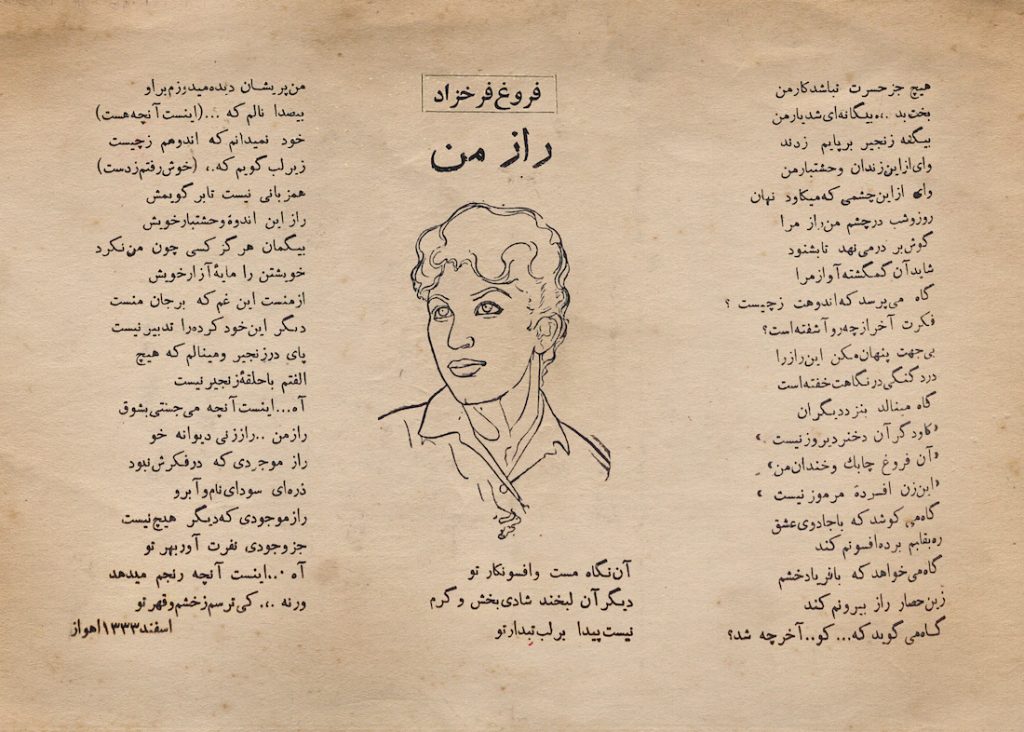 فروغ فرخزاد
راز من
هیچ جز حسرت نباشد کار من
بخت بد ،، بیگانه‌ای شد یار من
بیگنه زنجیر بر پایم زدند
وای از این زندان وحشتبار من
وای از این چشمی که میکاود نهان
روز و شب در چشم من راز مرا
گوش بر در می نهد تا بشنود
شاید آن گمگشته آواز مرا
گاه می پرسد که اندوهت ز چیست ؟
فکرت آخر از چه رو آشفته است؟
بی جهت پنهان مکن این راز را
درد گنگی در نگاهت خفته است
گاه مینالد بنزد دیگران
«کاو دگر آن دختر دیروز نیست»
«آن فروغ چابك و خندان من»
«این زن افسردهٔ مرموز نیست»
گاه می کوشد که با جادوی عشق
ره بقلبم برده افسونم کند
گاه می خواهد که با فریاد خشم
زین حصار راز بیرونم کند
گاه می گوید که ... کو .. آخر چه شد؟
آن نگاه مست و افسونکار تو
دیگر آن لبخند شادی بخش و گرم
نیست پیدا بر لب تبدار تو
من پریشان دیده میدوزم بر او
بیصدا نالم که ... (اینست آنچه هست)
خود نمیدانم که اندوهم ز چیست
زیر لب گویم که ،، (خوش رفتم ز دست)
همزبانی نیست تا بر گویمش
راز این اندوهٔ وحشتبار خویش
بیگمان هرگز کسی چون من نکرد
خویشتن را مایهٔ آزار خویش
از منست این غم که بر جان منست
دیگر این خود کرده را تدبیر نیست
پای در زنجیر و مینالم که هیچ
الفتم با حلقهٔ زنجیر نیست
آه ... اینست آنچه می جستی بشوق
راز من .. راز زنی دیوانه خو
راز موجودی که در فکرش نبود
ذره‌ای سودای نام و آبرو
راز موجودی که دیگر هیچ نیست
جز وجودی نفرت آور بهر تو
آه ... اینست آنچه رنجم میدهد
ورنه ،، کی ترسم ز خشم و قهر تو
اسفند ۱۳۳۳ اهواز